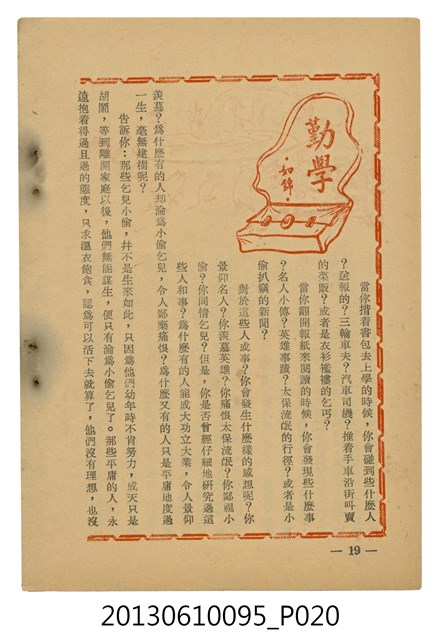 勤學
·如錦·
當你揹着書包去上學的時候,你會碰到些什麼人
?送報的?三輪車夫?汽車司機?推着手車沿街叫賣
的菜販?或者是衣衫襤褸的乞丐?
當你翻開報紙來閱讀的時候,你會發現些什麼事
?名人小傳?英雄事蹟?太保流氓的行徑?或者是小
偷扒竊的新聞?
對於這些人或事?你會發生什麼樣的感想呢?你
景仰名人?你羨慕英雄?你痛恨太保流氓?你鄙視小
偷?你同情乞兒?但是,你是否曾經仔細地研究過這
些人和事?爲什麼有的人能成大功立大業,令人景仰
羨慕?爲什麼有的人却淪爲小偷乞兒,令人鄙棄痛恨?爲什麼又有的人只是平庸地度過
一生,毫無建樹呢?
告訴你:那些乞兒小偷,并不是生來如此,只因爲他們幼年時不肯努力,成天只是
胡鬧,等到離開家庭以後,他們無能謀生,便只有淪爲小偷乞兒了。那些平庸的人,永
遠抱着得過且過的態度,只求溫衣飽食,認爲可以活下去就算了,他們沒有理想,也沒
— 19 —
20130610095_P020